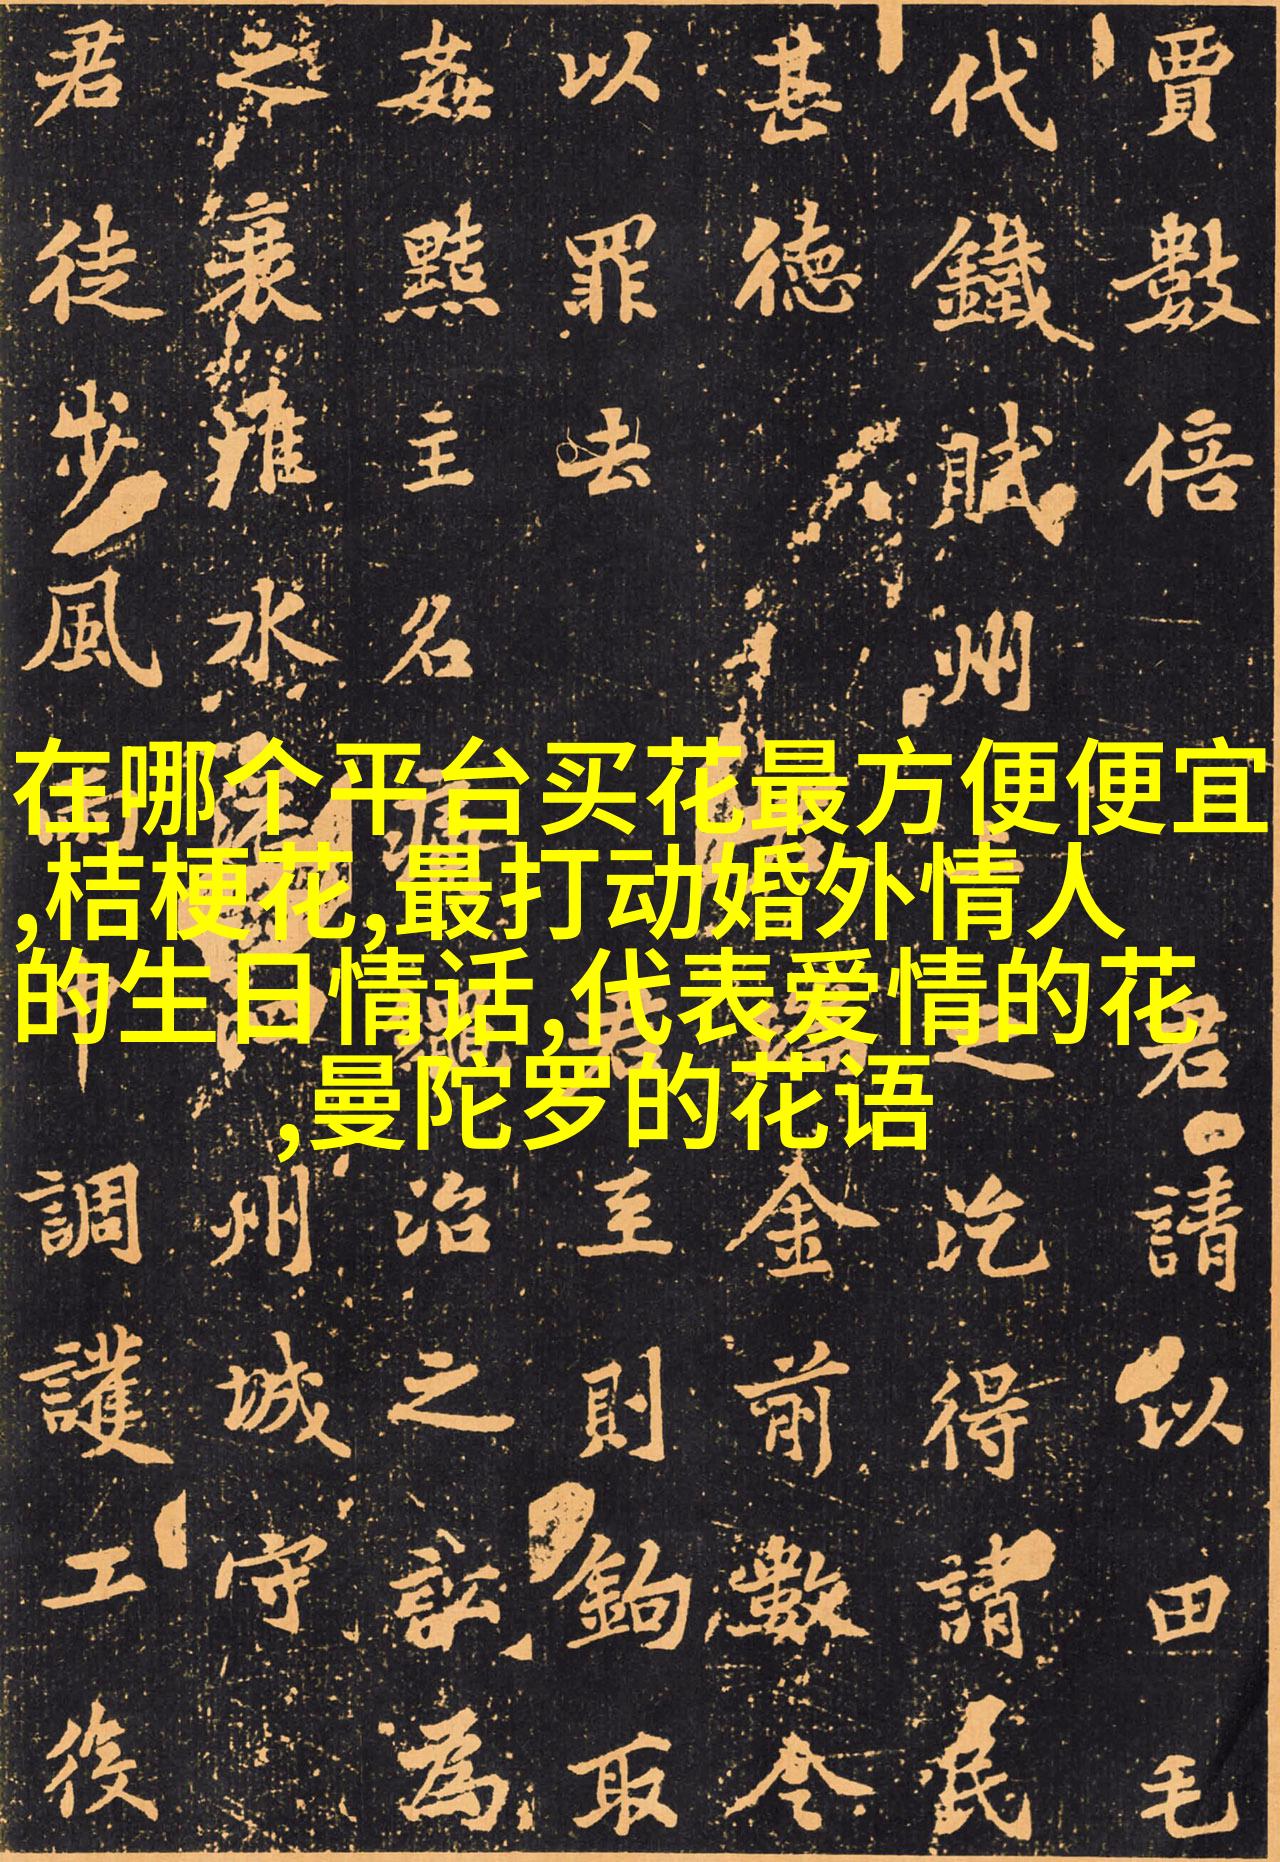 在哪个平台买花最方便便宜
,桔梗花,最打动婚外情人
的生日情话,代表爱情的花
,曼陀罗的花语
賈數倍君請以田毛
代鐵賦州之汔得請民
甚德金前數令
以罪去至則鉤取
姦黠主名治之訟為
之衰雍水州城守
君徒步風調護工役